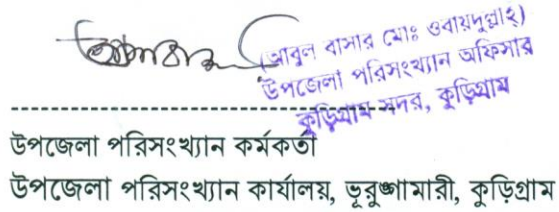 (আবুল বাসার মোঃ ওবায়দুল্লাহ)
উপজেলা পরিসংখ্যান অফিসার
কুড়িগ্রাম সদর, কুড়িগ্রাম
উপজেলা পরিসংখ্যান কর্মকর্তা
উপজেলা পরিসংখ্যান কার্যালয়, ভূরুঙ্গামারী, কুড়িগ্রাম